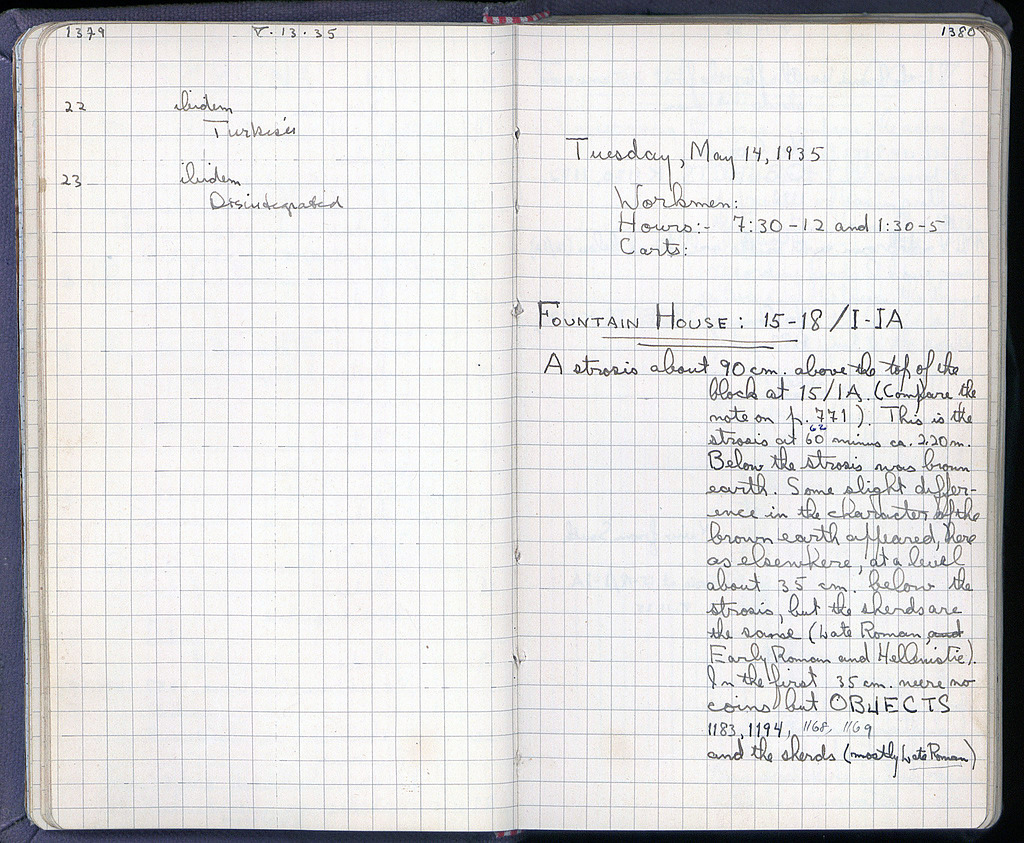 1379
V·13·35
22 ibidem
Turkish
23 ibidem
Disintegrated
1380
Tuesday, May 14, 1935
Workmen:
Hours:- 7:30-12 and 1:30-5
Carts:
FOUNTAIN HOUSE: 15-18/I-IA
A strosis about 90 cm. above the top of the
block at 15/IA. (Compare the
note on p. 771). This is the
62
strosis at 60 minus ca. 2.20 m.
Below the strosis was brown
earth. Some slight differ-
ence in the character of the
brown earth appeared, here
as elsewhere, at a level
about 35 cm. below the
strosis, but the sherds are
the same (Late Roman, and
Early Roman and Hellenistic).
In the first 35 cm. were no
coins but OBJECTS
1183, 1194, 1168, 1169
and the sherds (mostly Late Roman)